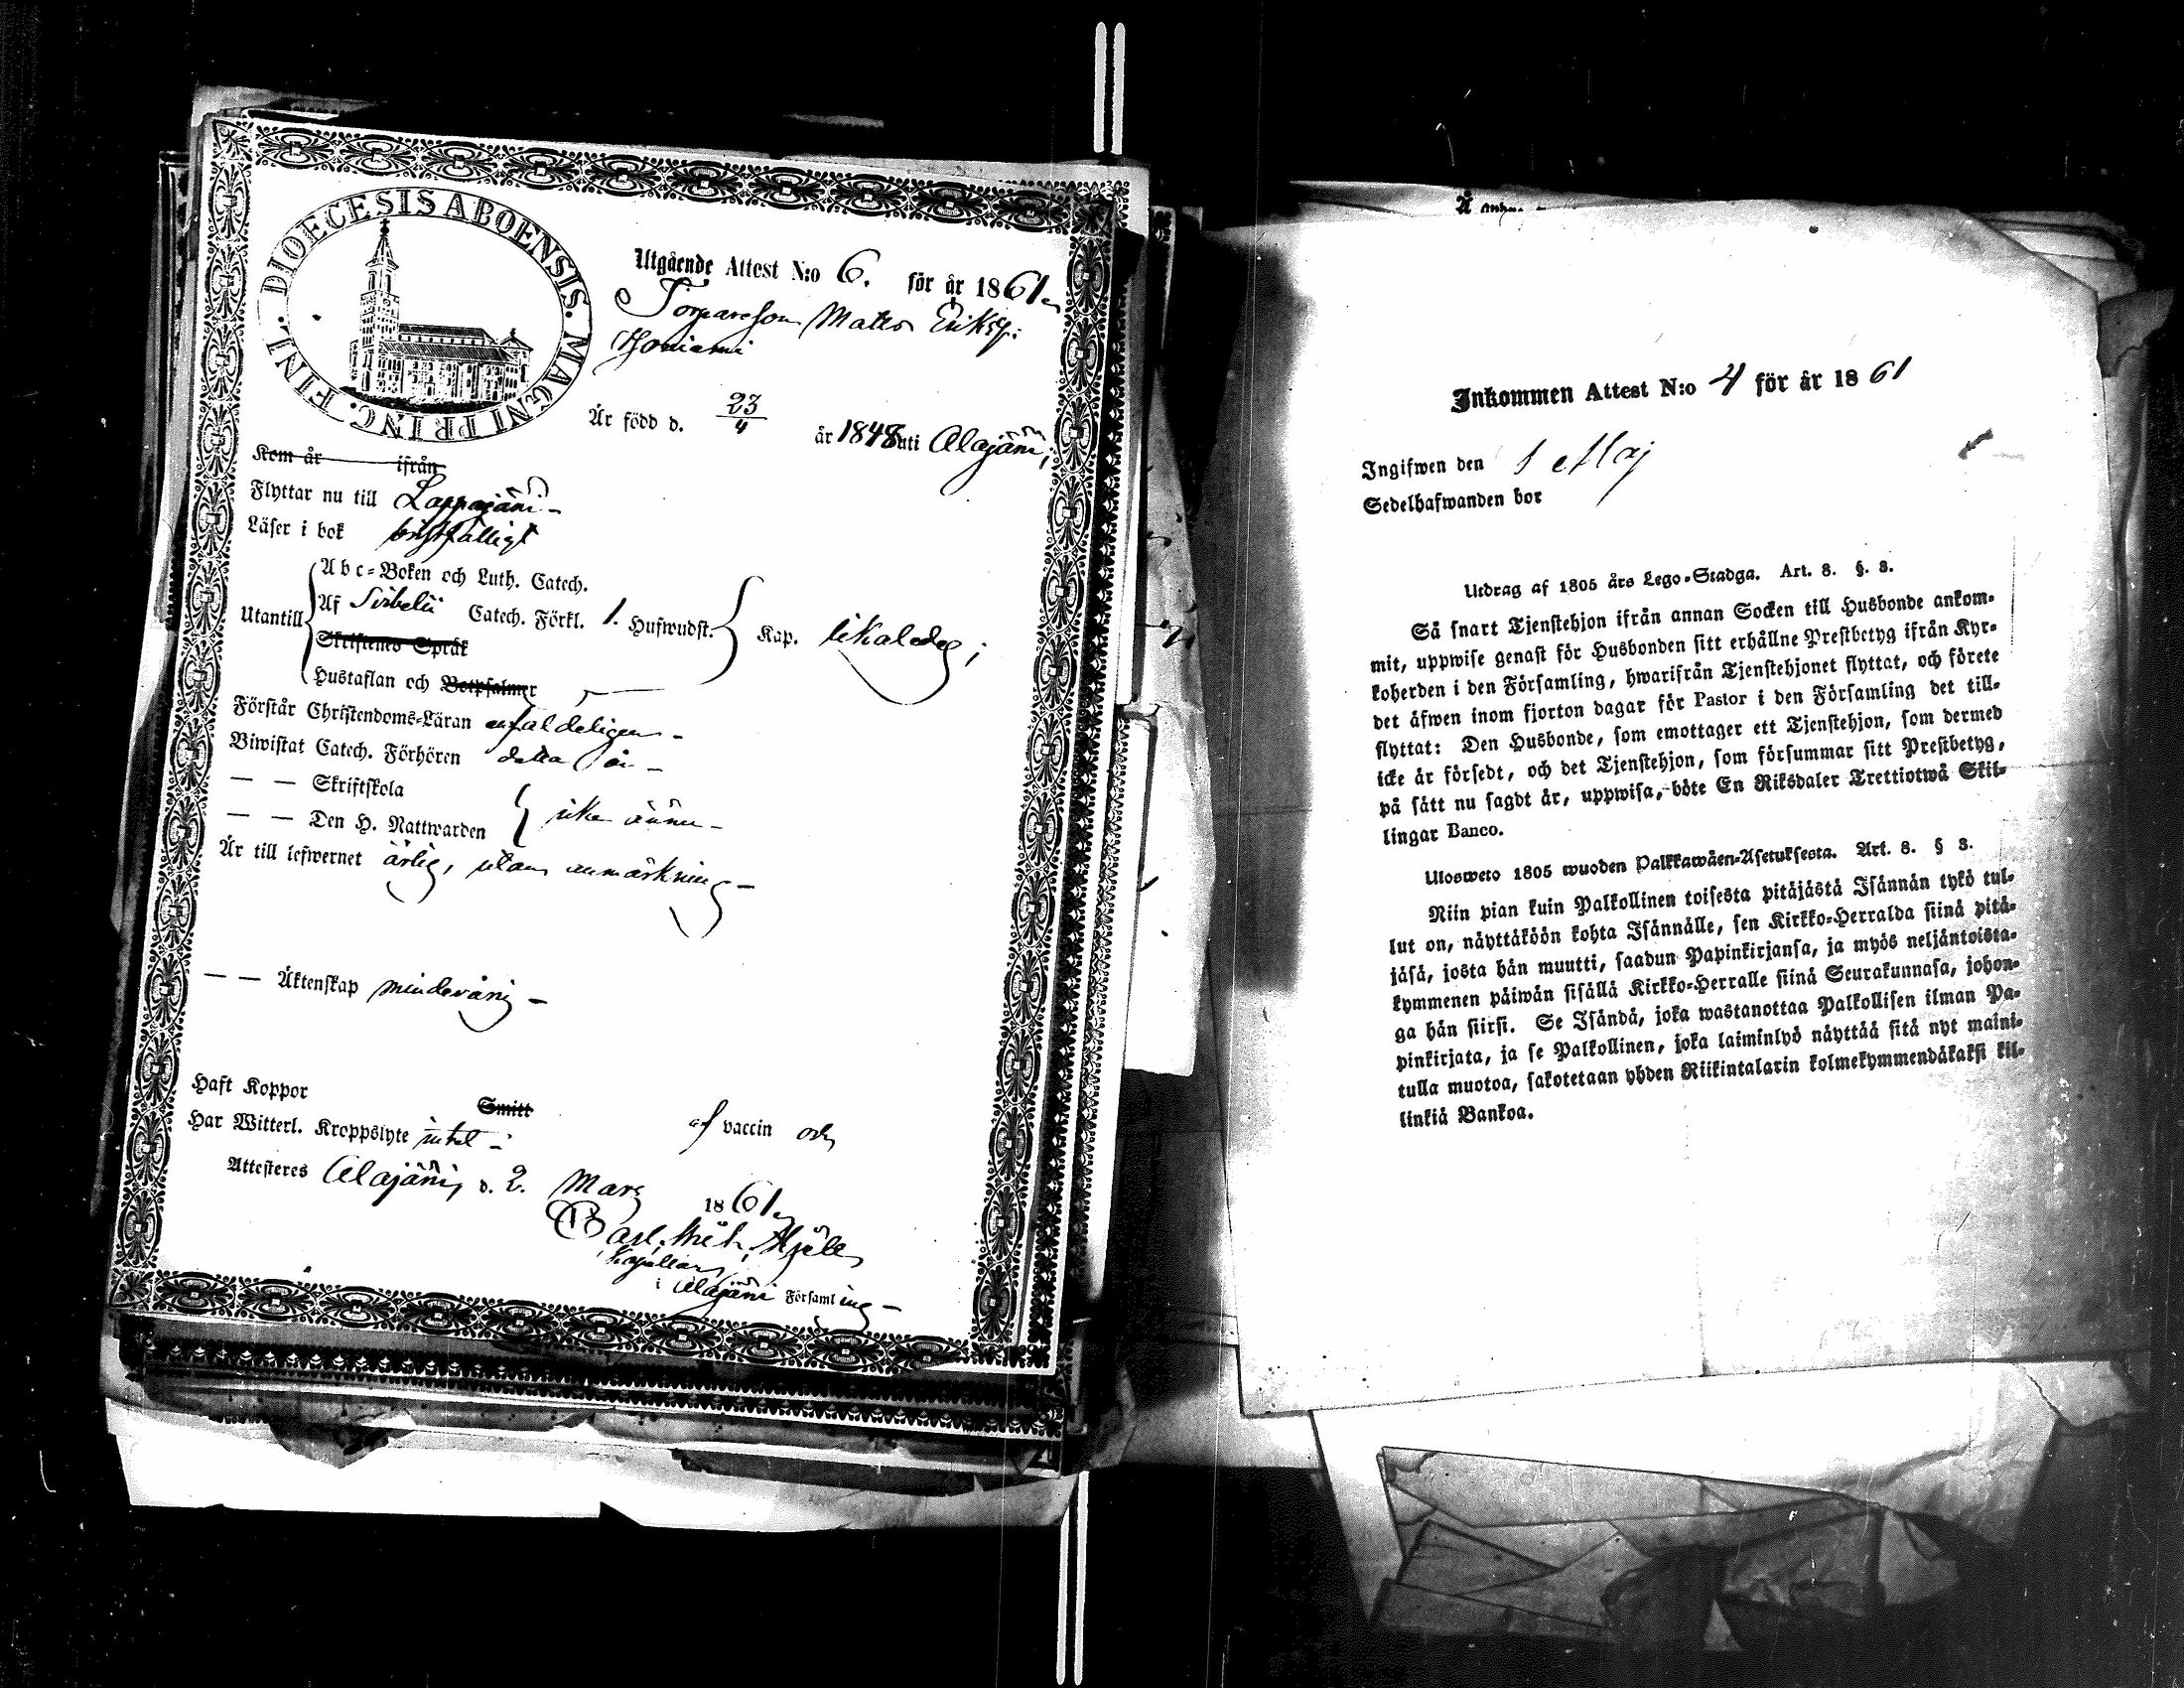 DIOECESIS ABOENSIS. MAGNI PRINC. FINL.
Utgående Attest N:o 6. för år 1861
Torpareson Matts Eriksf:
Är född d. 23/4 år 1848 uti Alajärvi,
Kom år ifrån
Flyttar nu till Lappajärvi –
Läser i bok bristfälligt
Utantill
Abc=Boken och Luth. Catech.
Af Svebelii Catech. Förkl. 1. Hufwudst. Kap. likaledes;
Skriftenes Språk
Hustaflan och Botpsalmer
Förstår Christendoms=Läran enfaldeligen –
Biwistat Catech. Förhören detta år –
— — Skriftskola
— — Den H. Nattwarden icke ännu –
Är till lefwernet ärlig, utan anmärkning –
— — Äktenskap minderårig –
Haft Koppor Smitt af vaccin och
Har Witterl. Kroppslyte intet –
Attesteres Alajärvi, d. 2. Mars 1861
Kapellan
i Alajärvi Församling –
Inkommen Attest N:o 4 för år 1861
Ingifwen den 1 Maj
Sedelhafwanden bor
Utdrag af 1805 års Lego=Stadga. Art. 8. §. 3.
Så snart Tjenstehjon ifrån annan Socken till Husbonde ankom=
mit, uppwise genast för Husbonden sitt erhållne Prestbetyg ifrån Kyr=
koherden i den Församling, hwarifrån Tjenstehjonet flyttat, och förete
det äfwen inom fjorton dagar för Pastor i den Församling det till=
flyttat: Den Husbonde, som emottager ett Tjenstehjon, som dermed
icke är försedt, och det Tjenstehjon, som försummar sitt Prestbetyg,
på sätt nu sagdt är, uppwisa, böte En Riksdaler Trettiotwå Skil=
lingar Banco.
Ulosweto 1805 wuoden Palkkawäen=Asetuksesta. Art. 8. § 3.
Niin pian kuin Palkollinen toisesta pitäjästä Isännän tykö tul=
lut on, näyttäköön kohta Isännälle, sen Kirkko=Herralda siinä pitä=
jäsä, josta hän muutti, saadun Papinkirjansa, ja myös neljäntoista=
kymmenen päiwän sisällä Kirkko=Herralle siinä Seurakunnasa, johon=
ga hän siirsi. Se Isändä, joka wastanottaa Palkollisen ilman Pa=
pinkirjata, ja se Palkollinen, joka laiminlyö näyttää sitä nyt maini=
tulla muotoa, sakotetaan yhden Riikintalarin kolmekymmendäkaksi kil=
linkiä Bankoa.